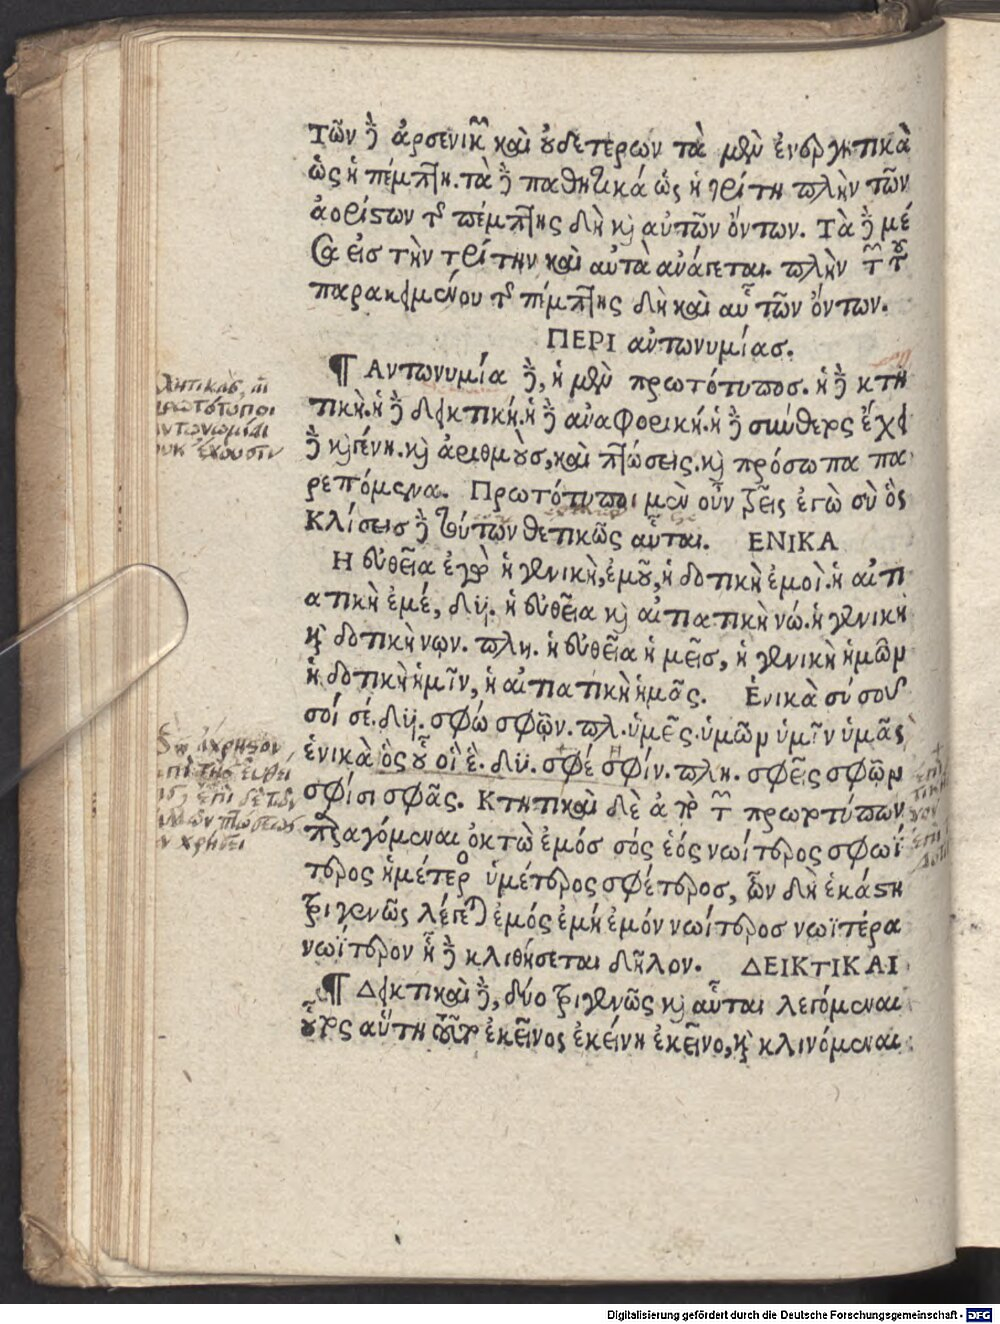 τῶν δὲ ἀρσενικῶν καὶ οὐδετέρων τὰ μὲν ἐνεργητικὰ
ὡς ἡ πέμπτη. τὰ δὲ παθητικά ὡς ἡ τρίτη πλὴν τῶν
ἀορίστων τῆς πέμπτης δὴ καὶ αὐτῶν ὄντων. Τὰ δὲ μέ
σα εἰσ τὴν τρίτην καὶ αὐτὰ ἀνάγεται. πλὴν τῶν τοῦ
παρακειμένου τῆς πέμπτης δὴ καὶ αὐτῶν ὄντων.
ΠΕΡΙ αὐτωνυμίασ.
¶ Αντωνυμία δὲ, ἡ μὲν πρωτότυποσ. ἡ δὲ κτη
τικὴ. ἡ δὲ δεικτική. ἡ δὲ ἀναφορική. ἡ δὲ σύνθετος ἔχει
δὲ καὶ γένη. καὶ ἀριθμοὺς, καὶ πτώσεις. καὶ πρόσωπα πα
ρεπόμενα. Πρωτότυποι μὲν οὖν τρεῖς ἐγὼ σὺ ὃς
Κλίσεισ δὲ τούτων θετικῶς αὗται. ΕΝΙΚΑ
Η εὐθεῖα ἐγὼ ἡ γενικὴ, ἐμοῦ, ἡ δοτικὴ ἐμοὶ. ἡ αἰτι
ατικὴ ἐμέ, δυϊ. ἡ εὐθεῖα καὶ αἰτιατικὴ νώ. ἡ γενικὴ
καὶ δοτικὴ νῳν. πλη. ἡ εὐθεῖα ἡμεῖσ, ἡ γενικὴ ἡμῶν
ἡ δοτικὴ ἡμῖν, ἡ αἰτιατικὴ ἡμᾶς. Ἑνικὰ σύ σοῦ
σοί σέ. δυϊ. σφώ σφῷν. πλ. ὑμεῖς. ὑμῶν ὑμῖν ὑμᾶς
ἑνικὰ ὃς οὗ οἷ ἓ. δυϊ. σφέ σφίν. πλη. σφεῖς σφῶν
σφίσι σφᾶς. Κτητικαὶ δὲ ἀπὸ τῶν πρωτοτύπων
παραγόμεναι ὀκτὼ ἐμόσ σός ἑός νωίτερος σφωΐ
τερος ἡμέτερος ὑμέτερος σφέτεροσ, ὧν δὴ ἑκάστη
τριγενῶς λέγεται ἐμός ἐμή ἐμόν νωίτεροσ νωϊτέρα
νωΐτερον ᾗ δὲ κλιθήσεται δῆλον. ΔΕΙΚΤΙΚΑΙ
¶ Δεικτικαὶ δὲ, δύο τριγενῶς καὶ αὗται λεγόμεναι
οὗτος αὕτη τοῦτο ἐκεῖνος ἐκείνη ἐκεῖνο, καὶ κλινόμεναι
πρωτότυποι
ἀντωνυμίαι
οὐκ ἔχουσιν
Digitalisierung gefördert durch die Deutsche Forschungsgemeinschaft - DFG